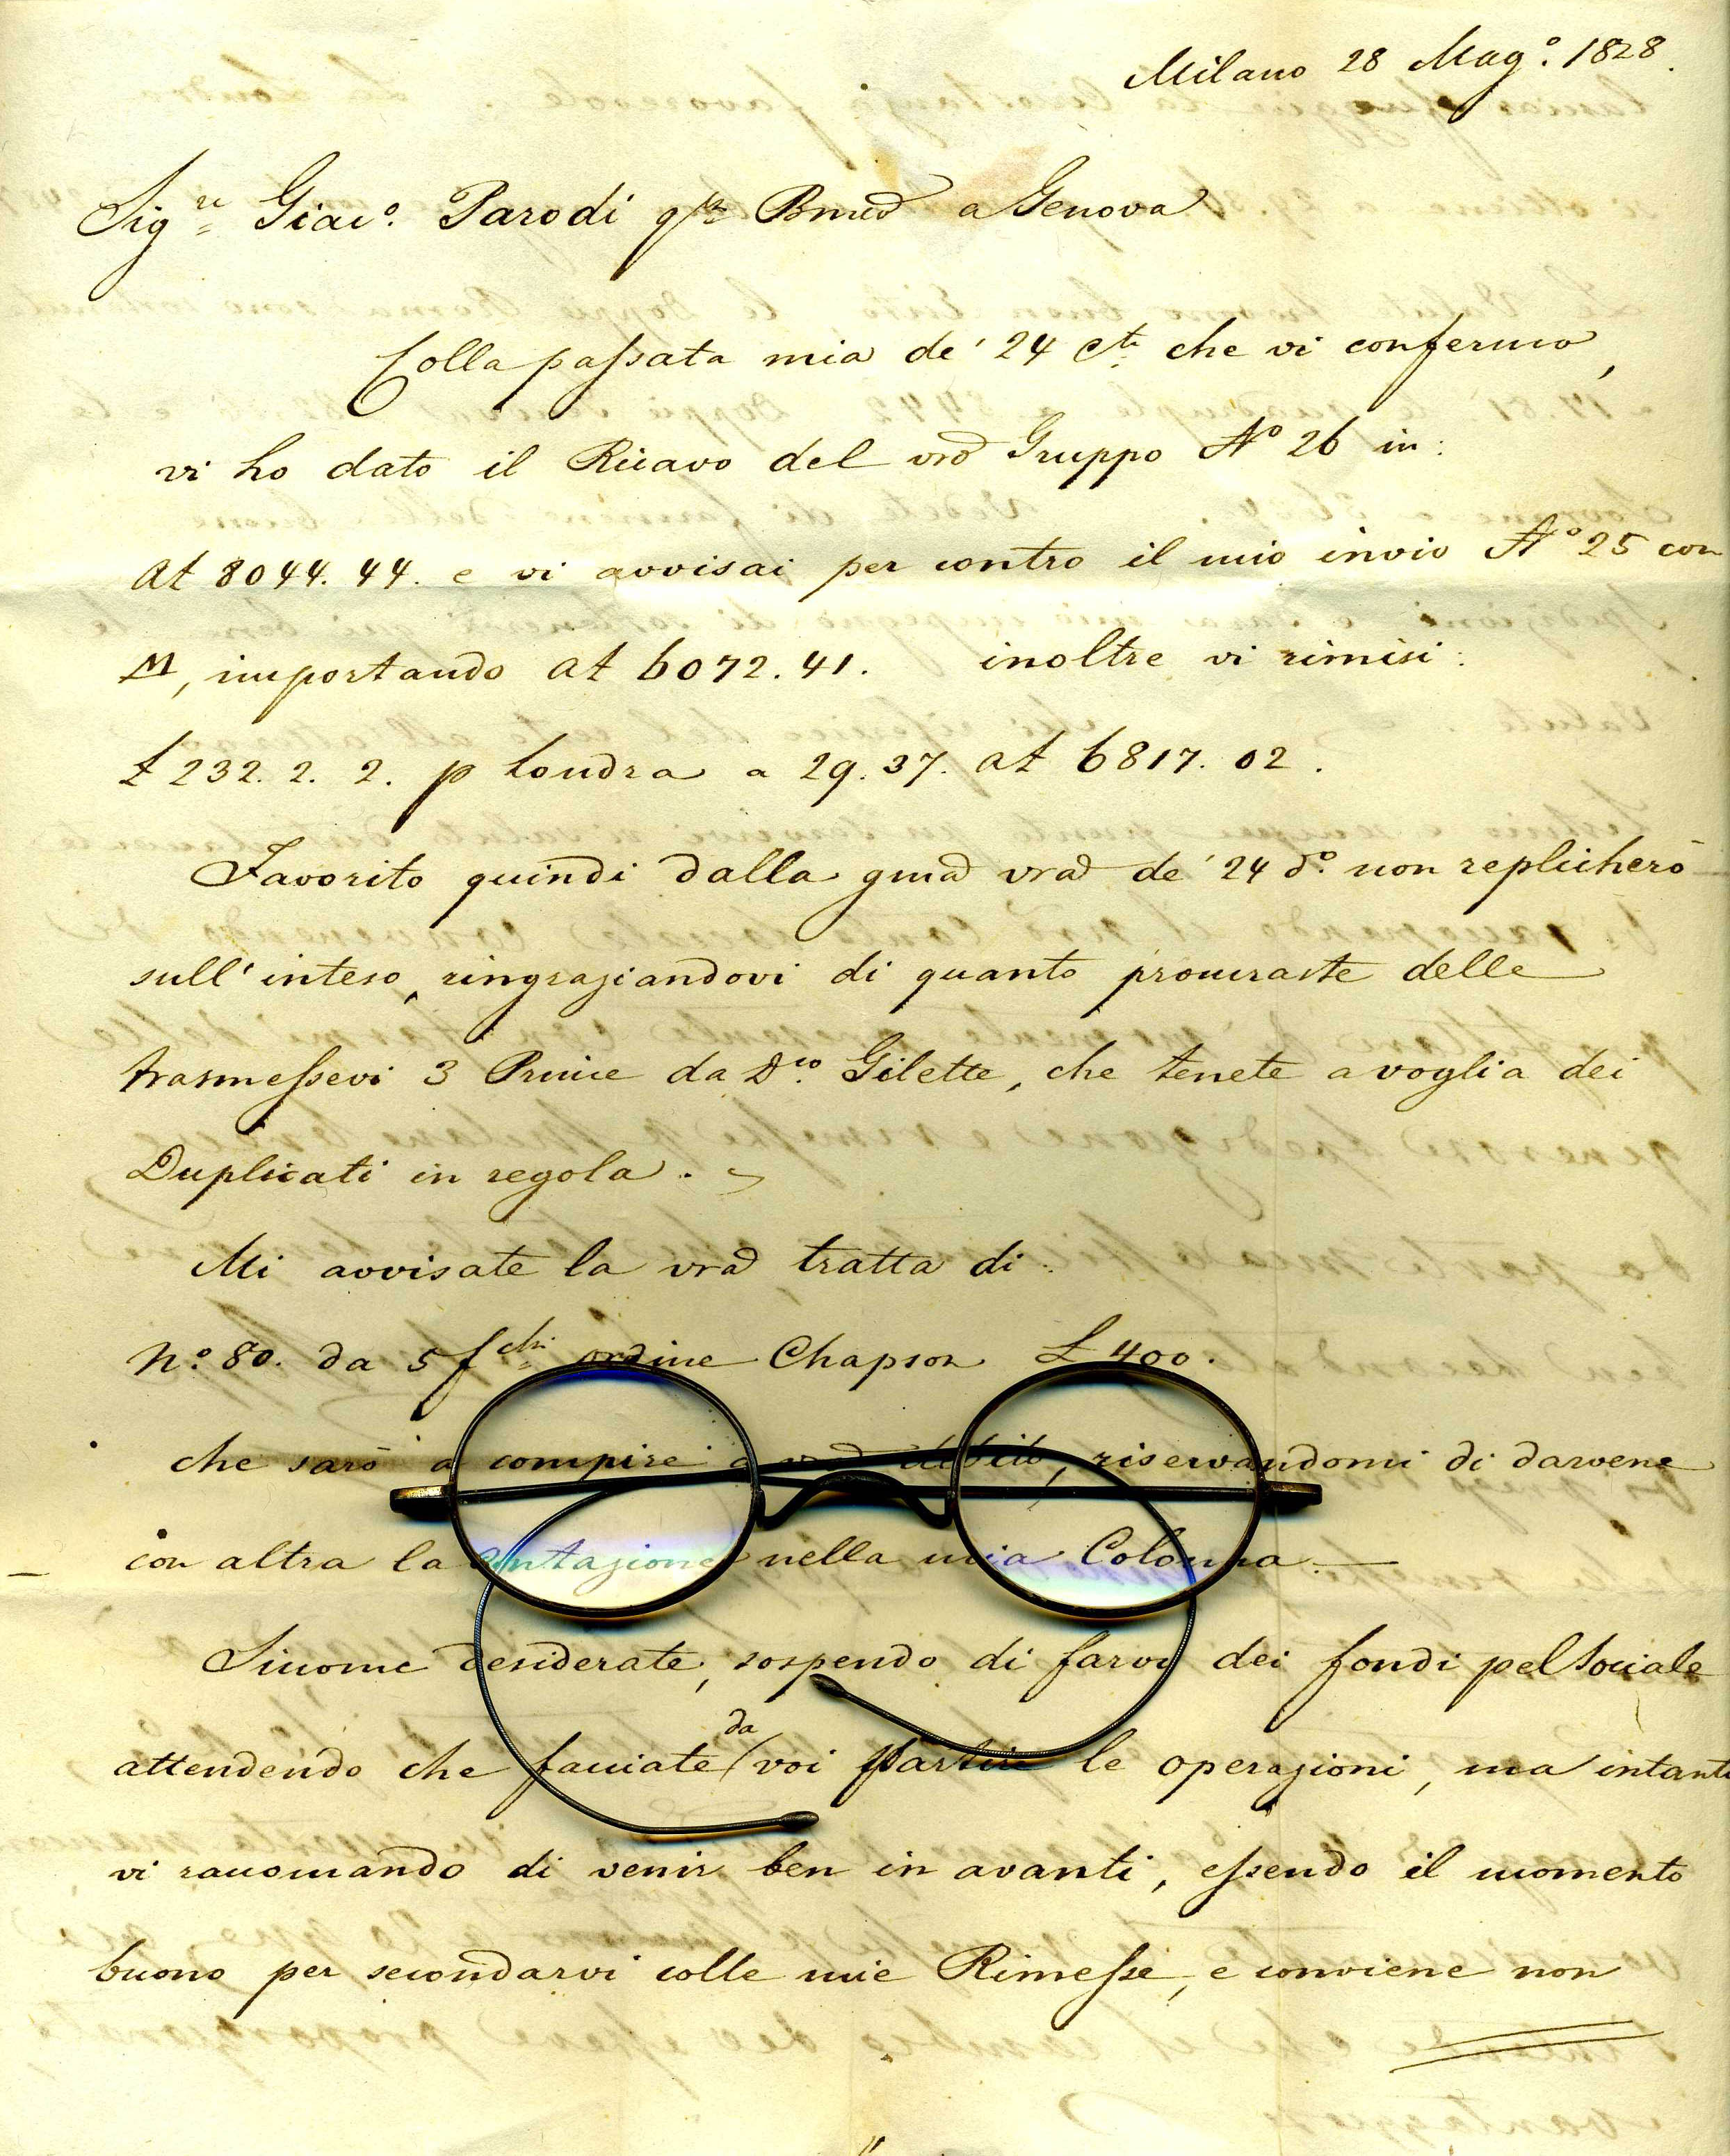 Milano 28 Mag.º 1828.
Sig.re Giac.º Parodi a Genova
Colla passata mia de' 24 C.te che vi confermo,
vi ho dato il Ricavo del vrõ Gruppo Nº 26 in:
At 8044. 44. e vi avvisai per contro il mio invio Nº 25 con
M, importando At 6072. 41. inoltre vi rimisi:
£ 232. 2. 2. p Londra a 29. 37. At 6817. 02.
Favorito quindi dalla gmã vrã de' 24 dº. non replicherò
sull'inteso, ringraziandovi di quanto procuraste delle
trasmessevi 3 Prime da D.co Gilette, che tenete a voglia dei
Duplicati in regola.
Mi avvisate la vrã tratta di:
Nº. 80. da 5 f.chi ordine Chapson £ 400.
che sarò a compire a vrõ debito, riservandomi di darvene
con altra la contazione nella mia Colonna. —
Siccome desiderate, sospendo di farvi dei fondi pel Sociale
attendendo che facciate da voi partire le operazioni, ma intanto
vi raccomando di venir ben in avanti, essendo il momento
buono per secondarvi colle mie Rimesse, e conviene non